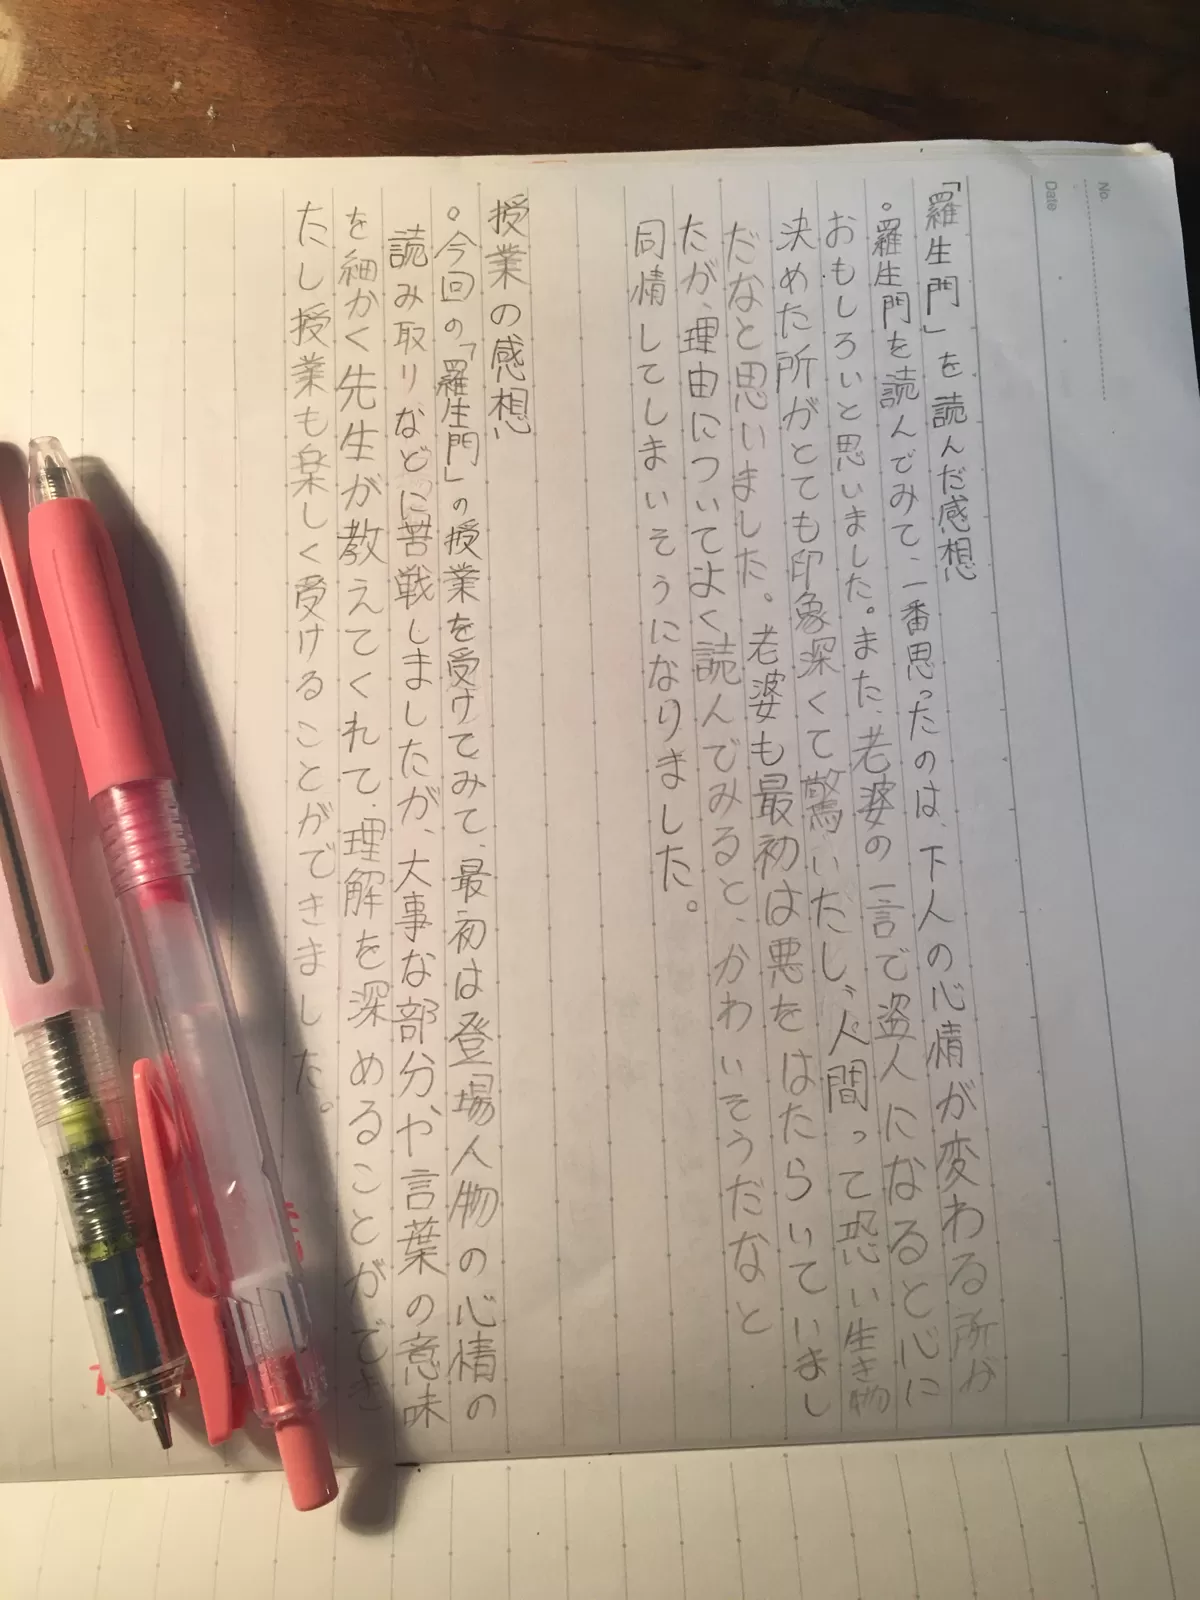 No.
Date
「羅生門」を読んだ感想
。羅生門を読んでみて、一番思ったのは、下人の心情が変わる所が
おもしろいと思いました。また、老婆の一言で盗人になると心に
決めた所がとても印象深くて驚いたし〝人間って恐い生き物
だなと思いました。老婆も最初は悪をはたらいていまし
たが、理由についてよく読んでみると、かわいそうだなと
同情してしまいそうになりました。
授業の感想
。今回の「羅生門」の授業を受けてみて、最初は登場人物の心情の
読み取りなどに苦戦しましたが、大事な部分や言葉の意味
を細かく先生が教えてくれて、理解を深めることができ
たし授業も楽しく受けることができました。